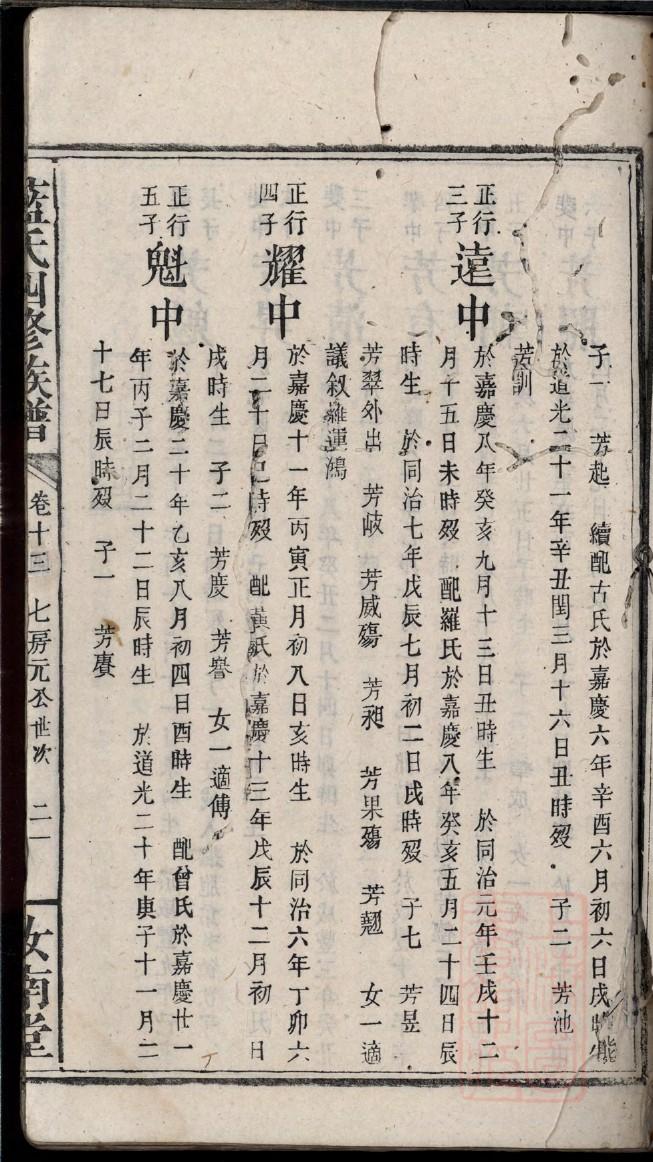 子一 芳起 續配古氏於嘉慶六年辛酉六月初六日戌時生
於道光二十一年辛丑閏三月十六日丑時歿 子二 芳池
芳訓
正行三子遠中 於嘉慶八年癸亥九月十三日丑時生 於同治元年壬戌十二
月十五日未時歿 配羅氏於嘉慶八年癸亥五月二十四日辰
時生 於同治七年戊辰七月初二日戌時歿 子七 芳昱
芳翠外出 芳岐 芳威殤 芳昶 芳果殤 芳翹 女一適
議敘羅運鴻
正行四子耀中 於嘉慶十一年丙寅正月初八日亥時生 於同治六年丁卯六
月二十日巳時歿 配黃氏於嘉慶十三年戊辰十二月初 日
戌時生 子二 芳慶 芳譽 女一適傅
正行五子魁中 於嘉慶二十年乙亥八月初四日酉時生 配曾氏於嘉慶廿一
年丙子二月二十二日辰時生 於道光二十年庚子十一月二
十七日辰時歿 子一 芳賡
藍氏四修族譜 卷十三 七房元公世次 二一 汝南堂